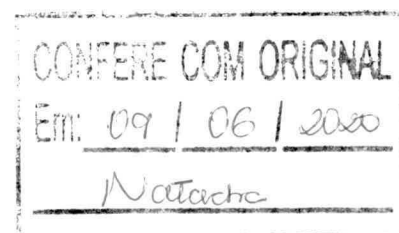 CONFERE COM ORIGINAL
Em: 09 / 06 / 2020
Natacha